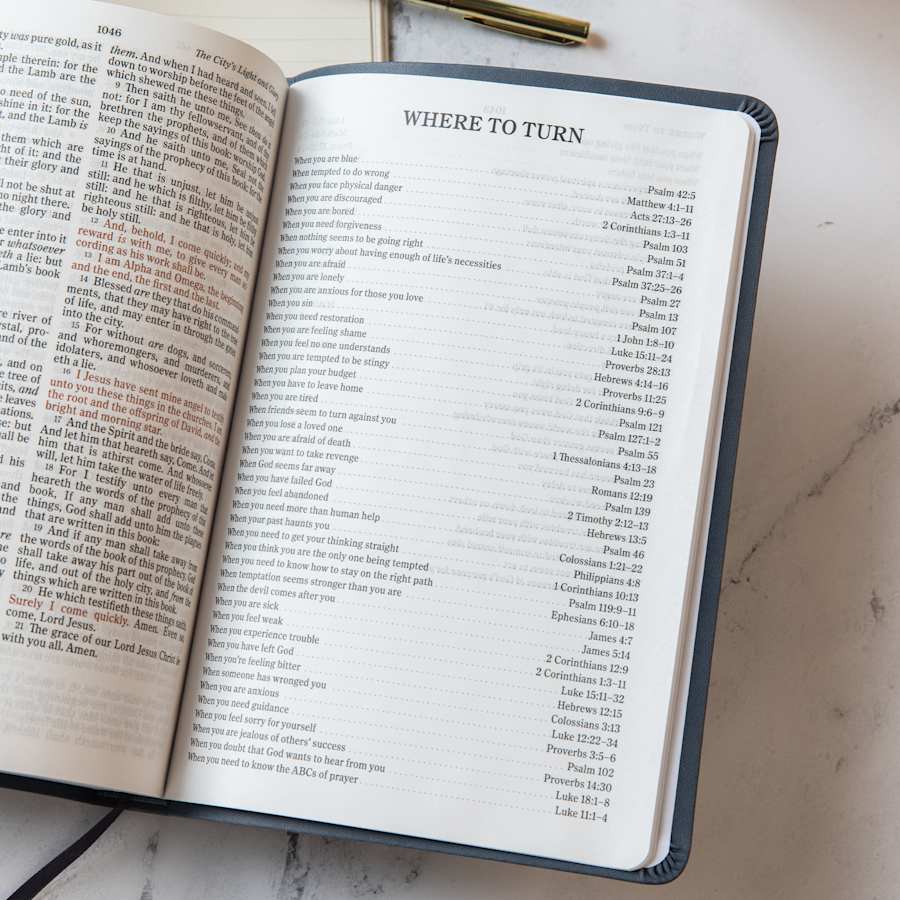 1046
The City's Light and Glory
ty was pure gold, as it
ple therein: for the
d the Lamb are the
o need of the sun,
shine in it: for the
t, and the Lamb is
them which are
ht of it: and the
their glory and
ll not be shut at
no night there.
the glory and
enter into it
r whatsoever
eth a lie: but
Lamb's book
re river of
ystal, pro-
and of the
, and on
e tree of
its, and
e leaves
ations.
se: but
hall be
d his
and
the
and
re
he
them. And when I had heard and seen, I fell
down to worship before the feet of the angel
which shewed me these things.
9 Then saith he unto me, See thou do it
not: for I am thy fellowservant, and of thy
brethren the prophets, and of them which
keep the sayings of this book: worship God.
10 And he saith unto me, Seal not the
sayings of the prophecy of this book: for the
time is at hand.
11 He that is unjust, let him be unjust
still: and he which is filthy, let him be filthy
still: and he that is righteous, let him be
righteous still: and he that is holy, let him
be holy still.
12 And, behold, I come quickly; and my
reward is with me, to give every man ac-
cording as his work shall be.
13 I am Alpha and Omega, the beginning
and the end, the first and the last.
14 Blessed are they that do his command
ments, that they may have right to the tree
of life, and may enter in through the gates
into the city.
15 For without are dogs, and sorcerers,
and whoremongers, and murderers, and
idolaters, and whosoever loveth and mak
eth a lie.
16 I Jesus have sent mine angel to testify
unto you these things in the churches. I am
the root and the offspring of David, and the
bright and morning star.
17 And the Spirit and the bride say, Come.
And let him that heareth say, Come. And let
him that is athirst come. And whosoever
will, let him take the water of life freely.
18 For I testify unto every man that
heareth the words of the prophecy of this
book, If any man shall add unto these
things, God shall add unto him the plagues
that are written in this book:
19 And if any man shall take away from
the words of the book of this prophecy, God
shall take away his part out of the book of
life, and out of the holy city, and from the
things which are written in this book.
20 He which testifieth these things saith,
Surely I come quickly. Amen. Even so,
come, Lord Jesus.
21 The grace of our Lord Jesus Christ be
with you all. Amen.
WHERE TO TURN
When you are blue Psalm 42:5
When tempted to do wrong Matthew 4:1–11
When you face physical danger Acts 27:13–26
When you are discouraged 2 Corinthians 1:3–11
When you are bored Psalm 103
When you need forgiveness Psalm 51
When nothing seems to be going right Psalm 37:1–4
When you worry about having enough of life's necessities Psalm 37:25–26
When you are afraid Psalm 27
When you are lonely Psalm 13
When you are anxious for those you love Psalm 107
When you sin 1 John 1:8–10
When you need restoration Luke 15:11–24
When you are feeling shame Proverbs 28:13
When you feel no one understands Hebrews 4:14–16
When you are tempted to be stingy Proverbs 11:25
When you plan your budget 2 Corinthians 9:6–9
When you have to leave home Psalm 121
When you are tired Psalm 127:1–2
When friends seem to turn against you Psalm 55
When you lose a loved one 1 Thessalonians 4:13–18
When you are afraid of death Psalm 23
When you want to take revenge Romans 12:19
When God seems far away Psalm 139
When you have failed God 2 Timothy 2:12–13
When you feel abandoned Hebrews 13:5
When you need more than human help Psalm 46
When your past haunts you Colossians 1:21–22
When you need to get your thinking straight Philippians 4:8
When you think you are the only one being tempted 1 Corinthians 10:13
When you need to know how to stay on the right path Psalm 119:9–11
When temptation seems stronger than you are Ephesians 6:10–18
When the devil comes after you James 4:7
When you are sick James 5:14
When you feel weak 2 Corinthians 12:9
When you experience trouble 2 Corinthians 1:3–11
When you have left God Luke 15:11–32
When you're feeling bitter Hebrews 12:15
When someone has wronged you Colossians 3:13
When you are anxious Luke 12:22–34
When you need guidance Proverbs 3:5–6
When you feel sorry for yourself Psalm 102
When you are jealous of others' success Proverbs 14:30
When you doubt that God wants to hear from you Luke 18:1–8
When you need to know the ABCs of prayer Luke 11:1–4